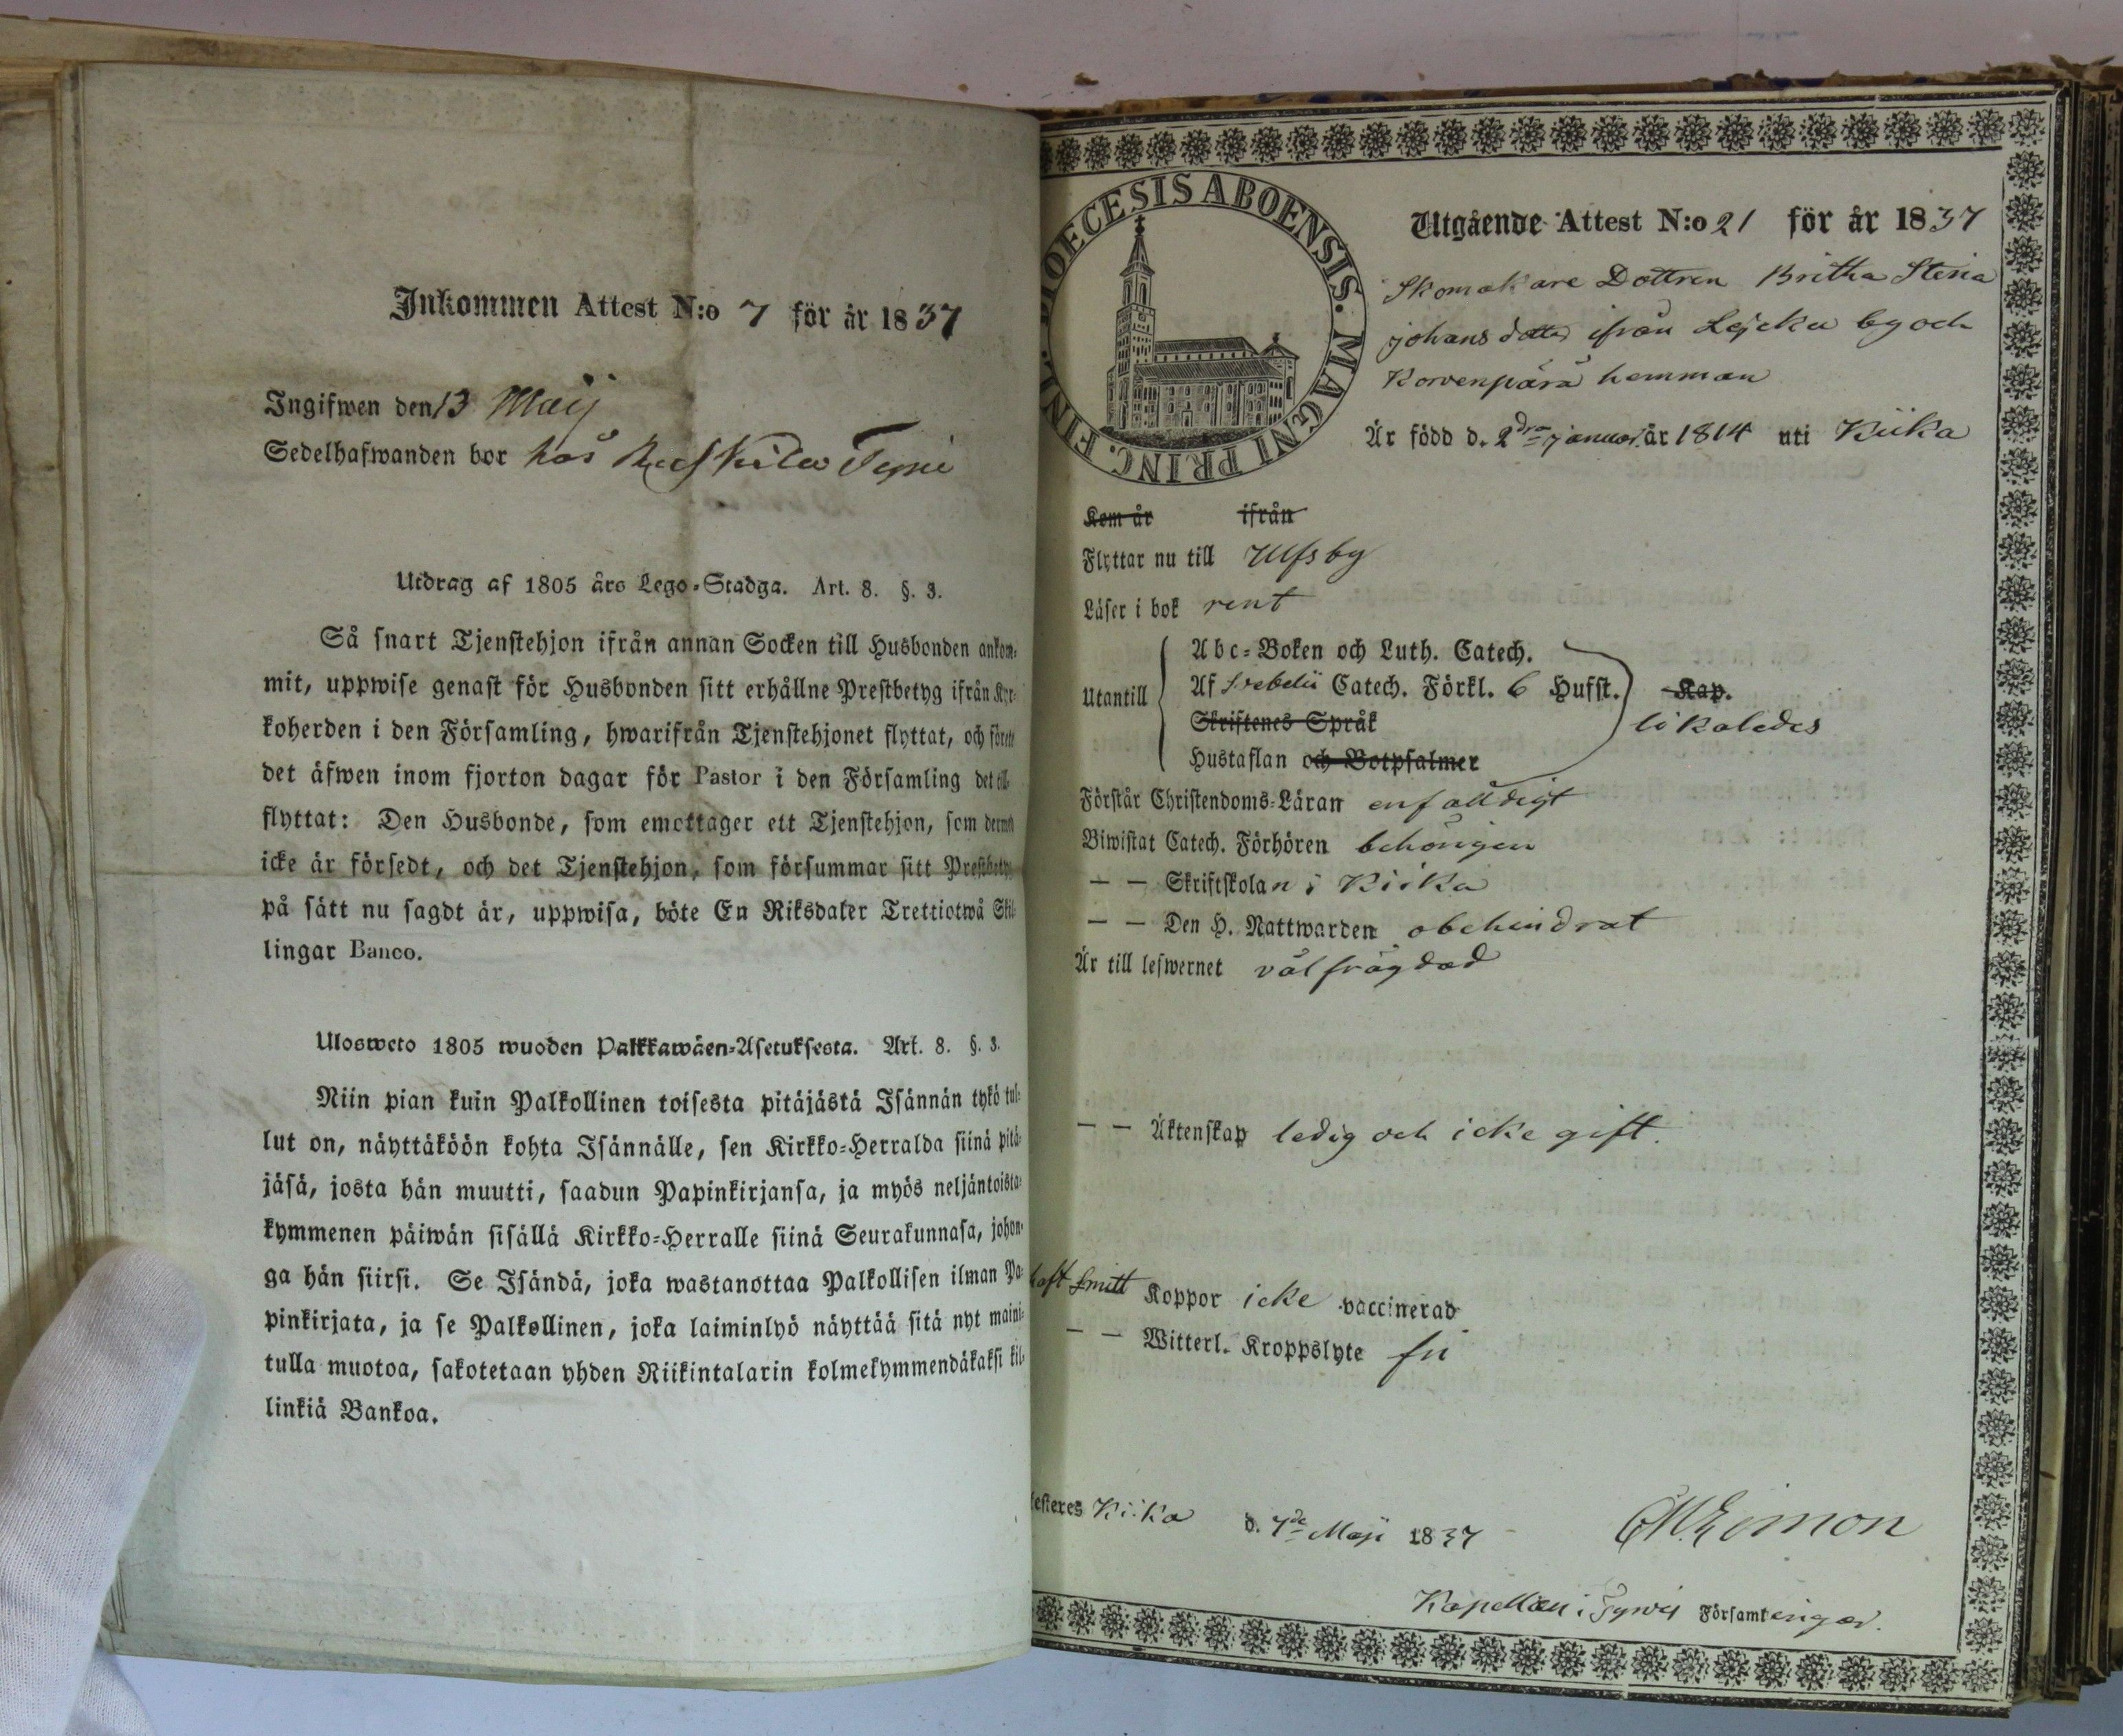 Inkommen Attest N:o 7 för år 1837
Ingifwen den 13 Maij
Sedelhafwanden bor hos
Utdrag af 1805 års Lego-Stadga. Art. 8. §. 3.
Så snart Tjenstehjon ifrån annan Socken till Husbonden ankom-
mit, uppwise genast för Husbonden sitt erhållne Prestbetyg ifrån Kyr-
koherden i den Församling, hwarifrån Tjenstehjonet flyttat, och förete
det äfwen inom fjorton dagar för Pastor i den Församling det till-
flyttat: Den Husbonde, som emottager ett Tjenstehjon, som dermed
icke är försedt, och det Tjenstehjon, som försummar sitt Prestbetyg
på sätt nu sagdt är, uppwisa, böte En Riksdaler Trettiotwå Skil-
lingar Banco.
Ulosweto 1805 wuoden Palkkawäen-Asetuksesta. Art. 8. §. 3.
Niin pian kuin Palkollinen toisesta pitäjästä Isännän tykö tul-
lut on, näyttäköön kohta Isännälle, sen Kirkko-Herralda siinä pitä-
jäsä, josta hän muutti, saadun Papinkirjansa, ja myös neljäntoista-
kymmenen päiwän sisällä Kirkko-Herralle siinä Seurakunnasa, johon-
ga hän siirsi. Se Isändä, joka wastanottaa Palkollisen ilman Pa-
pinkirjata, ja se Palkollinen, joka laiminlyö näyttää sitä nyt maini-
tulla muotoa, sakotetaan yhden Riikintalarin kolmekymmendäkaksi kil-
linkiä Bankoa.
DIOECESIS ABOENSIS. MAGNI PRINC. FINL.
Utgående Attest N:o 21 för år 1837
Skomakare Dottren Britha Stina
Johansdotter ifrån Lejcku by och
Korvenpärä hemman
Är född d. 2dra januar. år 1814 uti Kiika
Kom år ifrån
Flyttar nu till Ulfsby
Läser i bok rent
Utantill
Abc-Boken och Luth. Catech.
Af Svebelii Catech. Förkl. 6 Hufst. Kap.
Skriftenes Språk
likaledes
Hustaflan och Botpsalmer
Förstår Christendoms-Läran enfalldigt
Biwistat Catech. Förhören behörigen
— — Skriftskolan i Kiika
— — Den H. Nattwarden obehindrat
Är till lefwernet välfrägdad
— — Äktenskap ledig och icke gift.
haft Smitt Koppor icke vaccinerad
— — Witterl. Kroppslyte fri
testeres Kiika d. 7de Maji 1837
Kapellan i Tyrvis Församlingar.